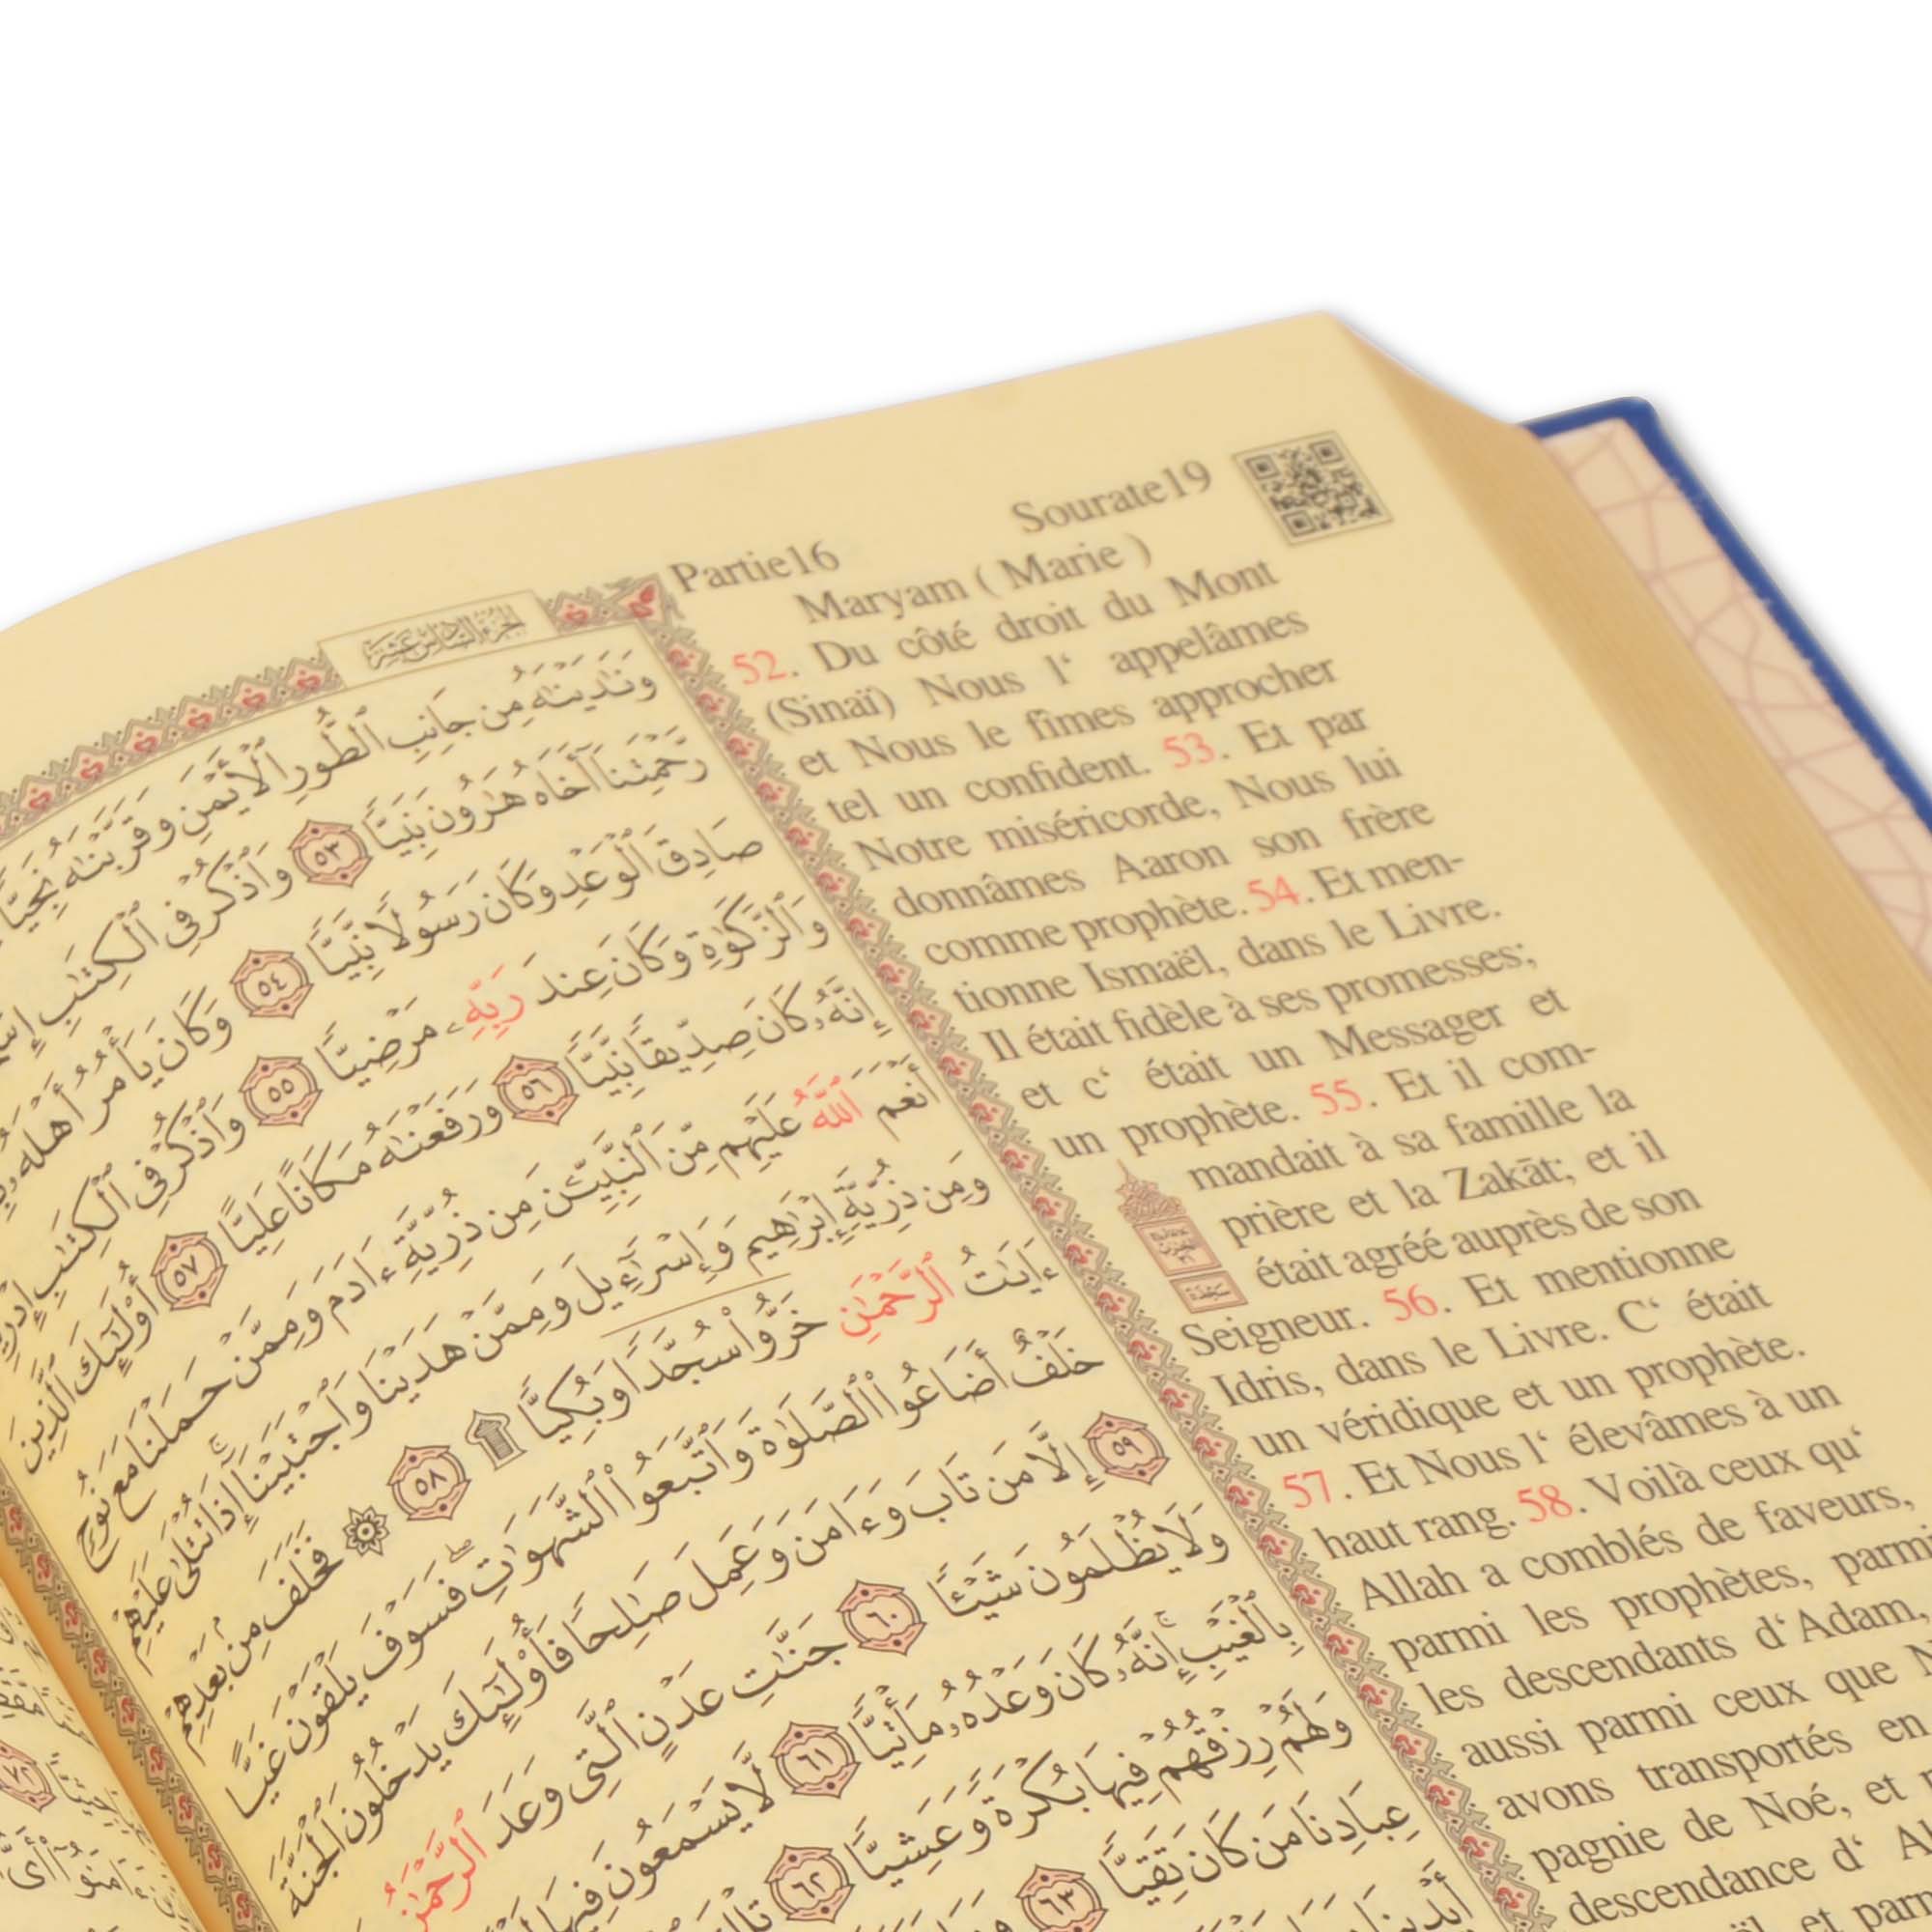 Partie16
Sourate19
Maryam ( Marie )
52. Du côté droit du Mont
(Sinaï) Nous l‘ appelâmes
et Nous le fîmes approcher
tel un confident. 53. Et par
Notre miséricorde, Nous lui
donnâmes Aaron son frère
comme prophète. 54. Et men-
tionne Ismaël, dans le Livre.
Il était fidèle à ses promesses;
et c‘ était un Messager et
un prophète. 55. Et il com-
mandait à sa famille la
prière et la Zakāt; et il
était agréé auprès de son
Seigneur. 56. Et mentionne
Idris, dans le Livre. C‘ était
un véridique et un prophète.
57. Et Nous l‘ élevâmes à un
haut rang. 58. Voilà ceux qu‘
Allah a comblés de faveurs,
parmi les prophètes, parmi
les descendants d‘Adam,
aussi parmi ceux que
avons transportés en
pagnie de Noé, et
descendance d‘
et
الجزء السادس عشر
وَنَٰدَيْنَٰهُ مِن جَانِبِ ٱلطُّورِ ٱلْأَيْمَنِ وَقَرَّبْنَٰهُ نَجِيًّا
رَّحْمَتِنَآ أَخَاهُ هَٰرُونَ نَبِيًّا ٥٣ وَٱذْكُرْ فِى ٱلْكِتَٰبِ
صَادِقَ ٱلْوَعْدِ وَكَانَ رَسُولًا نَّبِيًّا ٥٤ وَكَانَ يَأْمُرُ أَهْلَهُۥ
وَٱلزَّكَوٰةِ وَكَانَ عِندَ رَبِّهِۦ مَرْضِيًّا ٥٥ وَٱذْكُرْ فِى ٱلْكِتَٰبِ
إِنَّهُۥ كَانَ صِدِّيقًا نَّبِيًّا ٥٦ وَرَفَعْنَٰهُ مَكَانًا عَلِيًّا ٥٧ أُو۟لَٰٓئِكَ ٱلَّذِينَ
أَنْعَمَ ٱللَّهُ عَلَيْهِم مِّنَ ٱلنَّبِيِّۦنَ مِن ذُرِّيَّةِ ءَادَمَ وَمِمَّنْ حَمَلْنَا مَعَ نُوحٍ
وَمِن ذُرِّيَّةِ إِبْرَٰهِيمَ وَإِسْرَٰٓءِيلَ وَمِمَّنْ هَدَيْنَا وَٱجْتَبَيْنَآ ۚ إِذَا تُتْلَىٰ عَلَيْهِمْ
ءَايَٰتُ ٱلرَّحْمَٰنِ خَرُّوا۟ سُجَّدًا وَبُكِيًّا ۩ ٥٨ ۞ فَخَلَفَ مِنۢ بَعْدِهِمْ
خَلْفٌ أَضَاعُوا۟ ٱلصَّلَوٰةَ وَٱتَّبَعُوا۟ ٱلشَّهَوَٰتِ ۖ فَسَوْفَ يَلْقَوْنَ غَيًّا
٥٩ إِلَّا مَن تَابَ وَءَامَنَ وَعَمِلَ صَٰلِحًا فَأُو۟لَٰٓئِكَ يَدْخُلُونَ ٱلْجَنَّةَ
وَلَا يُظْلَمُونَ شَيْـًٔا ٦٠ جَنَّٰتِ عَدْنٍ ٱلَّتِى وَعَدَ ٱلرَّحْمَٰنُ
بِٱلْغَيْبِ ۚ إِنَّهُۥ كَانَ وَعْدُهُۥ مَأْتِيًّا ٦١ لَّا يَسْمَعُونَ فِيهَا
وَلَهُمْ رِزْقُهُمْ فِيهَا بُكْرَةً وَعَشِيًّا ٦٢
عِبَادِنَا مَن كَانَ تَقِيًّا ٦٣